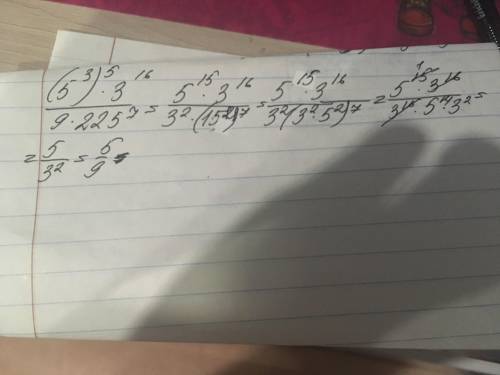 ((5³)⁵ · 3¹⁶)/(9 · 225⁷) = (5¹⁵ · 3¹⁶)/(3² · (15²)⁷) = (5¹⁵ · 3¹⁶)/(3²(3² · 5²)⁷) = (5¹⁵ · 3¹⁶)/(3¹⁴ · 5¹⁴ · 3²) =
= 5/3² = 5/9